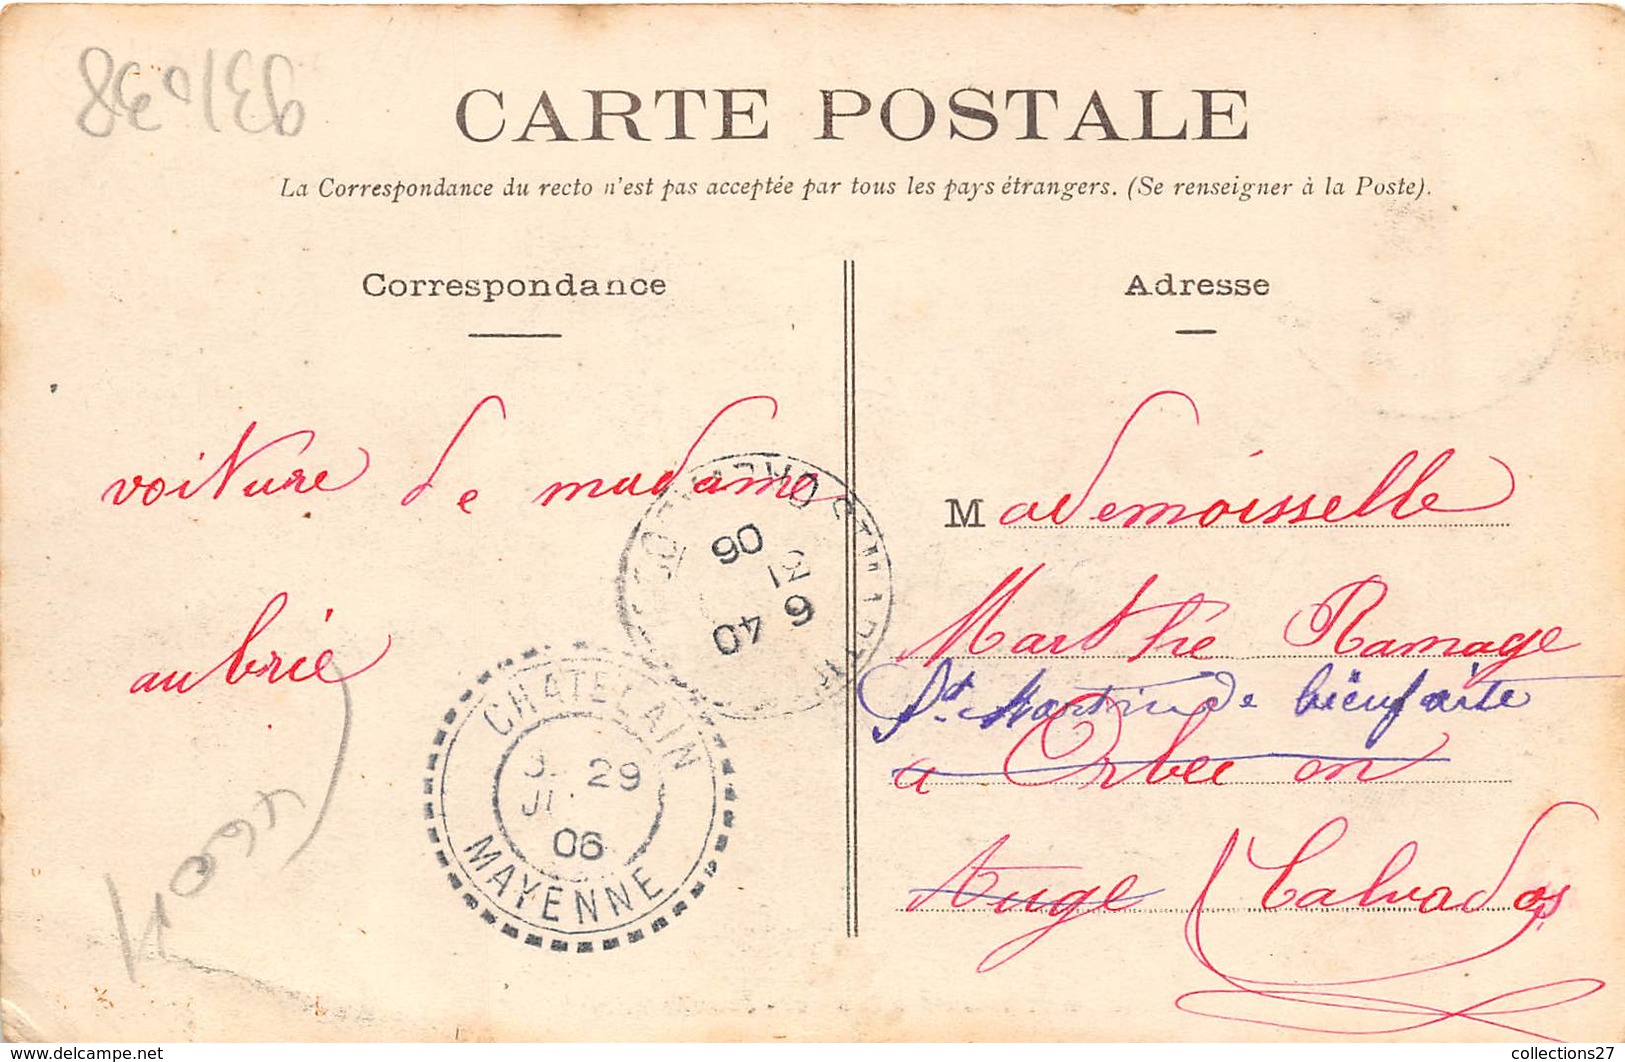 CARTE POSTALE
La Correspondance du recto n'est pas acceptée par tous les pays étrangers. (Se renseigner à la Poste).
Correspondance
Adresse
voiture de madame
aubrie
Mademoisselle
Marthe Ramage
St Martin de bienfaite
a Orbec en
Auge (Calvados
CHATELAIN
29
06
MAYENNE
6 40
31
06
www.delcampe.net
collections27